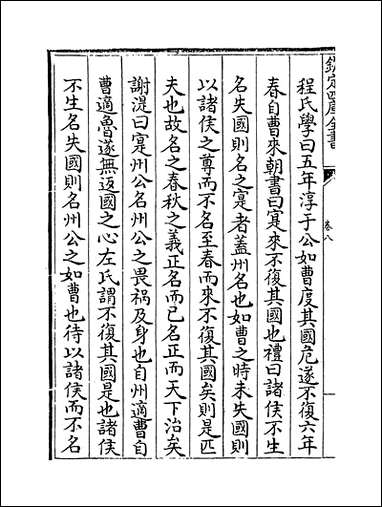 欽定四庫全書
卷八
程氏學曰五年淳于公如曹度其國危遂不復六年
春自曹來朝書曰寔來不復其國也禮曰諸侯不生
名失國則名之寔者蓋州名也如曹之時未失國則
以諸侯之尊而不名至春而來不復其國矣則是匹
夫也故名之春秋之義正名而已名正而天下治矣
謝湜曰寔州公名州公之畏禍及身也自州適曹自
曹適魯遂無返國之心左氏謂不復其國是也諸侯
不生名失國則名州公之如曹也待以諸侯而不名